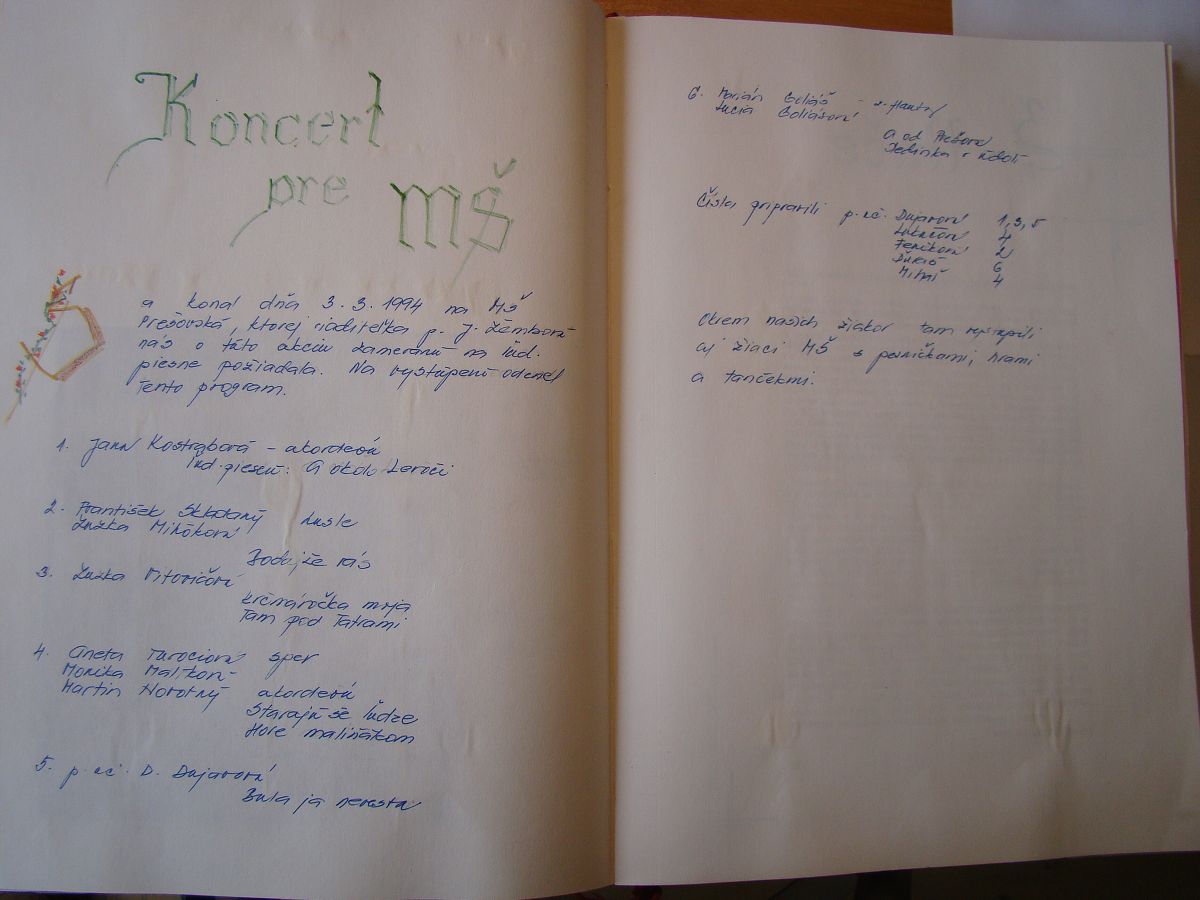 Koncert
pre MŠ
sa konal dňa 3. 3. 1994 na MŠ
Prešovská, ktorej riaditeľka p. J. Žembová
nás o túto akciu zameranú na ľud.
piesne požiadala. Na vystúpení odznel
tento program.
1. Jana Kostrábová - akordeón
ľud. pieseň: A okolo Levoči
2. František Skladaný husle
Zuzka Mihóková
Bodajže vás
3. Zuzka Vitovičová
Krčmáročka moja
Tam pod Tatrami
4. Aneta Turociová spev
Monika Malíkov-
Martin Novotný akordeón
Starajú še ľudze
Hore maliňákom
5. p. uč. D. Dujavová
Bula ja nevesta
6. Marián Goliáš - z. flauty
Lucia Goliášová
A od Prešova
Dedinka v údolí
Čísla pripravili p. uč. Dujavová 1, 3, 5
4
Feníková 2
6
Mihaš 4
Okrem našich žiakov tam vystúpili
aj žiaci MŠ s pesničkami, hrami
a tančekmi.